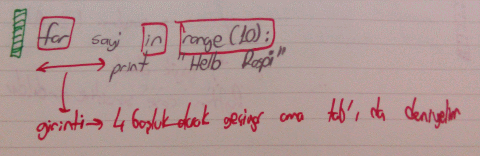 for sayi in range(10):
print "Hello Raspi"
girinti → 4 boşluk olarak geçiyor ama tab', da deniyelim